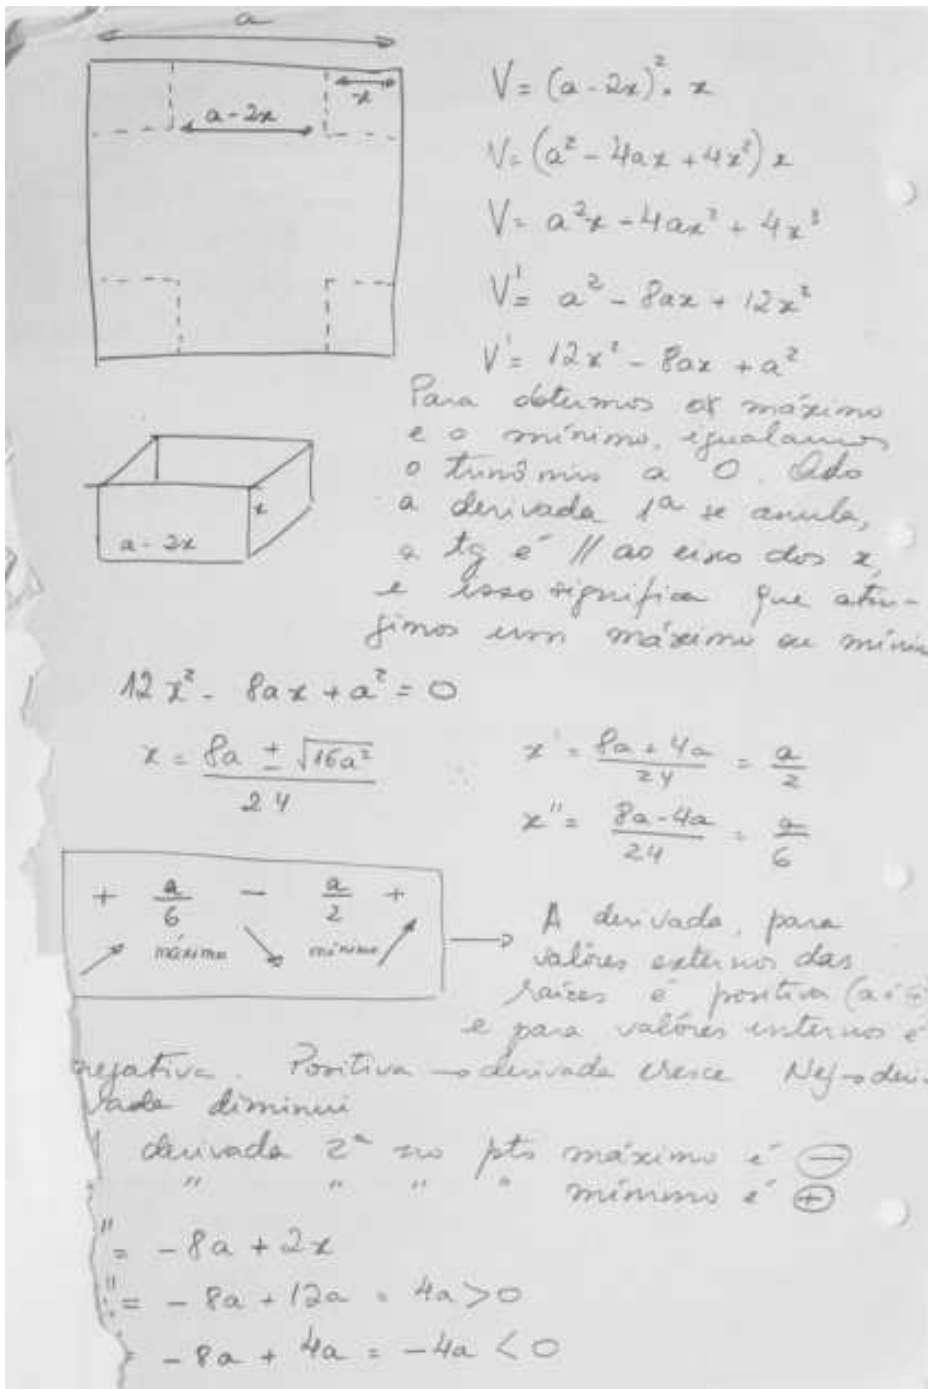 a
x
a - 2x
V = (a - 2x)². x
V = (a² - 4ax + 4x²) x
V = a²x - 4ax² + 4x³
V' = a² - 8ax + 12x²
V' = 12x² - 8ax + a²
Para determos os máximo
e o mínimo, igualamos
o trinômio a 0. Qdo
a derivada 1ª se anula,
a tg é // ao eixo dos x,
e isso significa que atin-
gimos um máximo ou mínim
x
a - 2x
12x² - 8ax + a² = 0
x = 8a ± √16a² / 24
x' = 8a + 4a / 24 = a/2
x" = 8a - 4a / 24 = a/6
+ a/6 - a/2 +
máximo mínimo
A derivada, para
valôres externos das
raízes é positiva (a é +)
e para valôres internos é
negativa. Positiva → derivada cresce Neg → deri
vada diminui
derivada 2ª no pto máximo é -
" " " " mínimo é +
" = -8a + 2x
" = -8a + 12a = 4a > 0
= -8a + 4a = -4a < 0